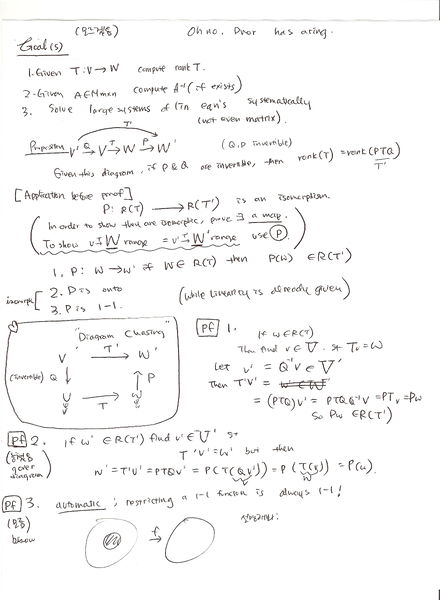 Oh no. Dvor has a ring.
Goal(s)
1. Given T: V → W compute rank T.
2. Given A∈Mn×n compute A⁻¹ (if exists)
3. Solve large systems of lin eqn's systematically
(not even matrix).
Proposition V' Q→ V T→ W P→ W' (Q,P invertible)
Given this diagram, if P & Q are invertible, then rank(T) = rank(PTQ)
T'
[Application before proof]
P: R(T) → R(T') is an isomorphism.
In order to show they are isomorphic, prove ∃ a map.
To show W range = W' range use P.
1. P: W → W' if W∈R(T) then P(W) ∈R(T')
2. P is onto
3. P is 1-1.
(while linearity is already given)
"Diagram Chasing"
V' T'→ W'
(invertible) Q ↓ ↑ P
V T→ W
Pf 1. if w∈R(T)
Then find v∈V st Tv=w
Let v' = Q⁻¹v∈V'
Then T'v' =
= (PTQ)v' = PTQQ⁻¹v = PTv = Pw
So Pw ∈R(T')
Pf 2. if w' ∈R(T') find v'∈V' st
T'v'=w' but then
diagram
w' = T'v' = PTQv' = P(T(Qv')) = P(T(v)) = P(w).
v
w
Pf 3. automatic ; restricting a 1-1 function is always 1-1!
below
f